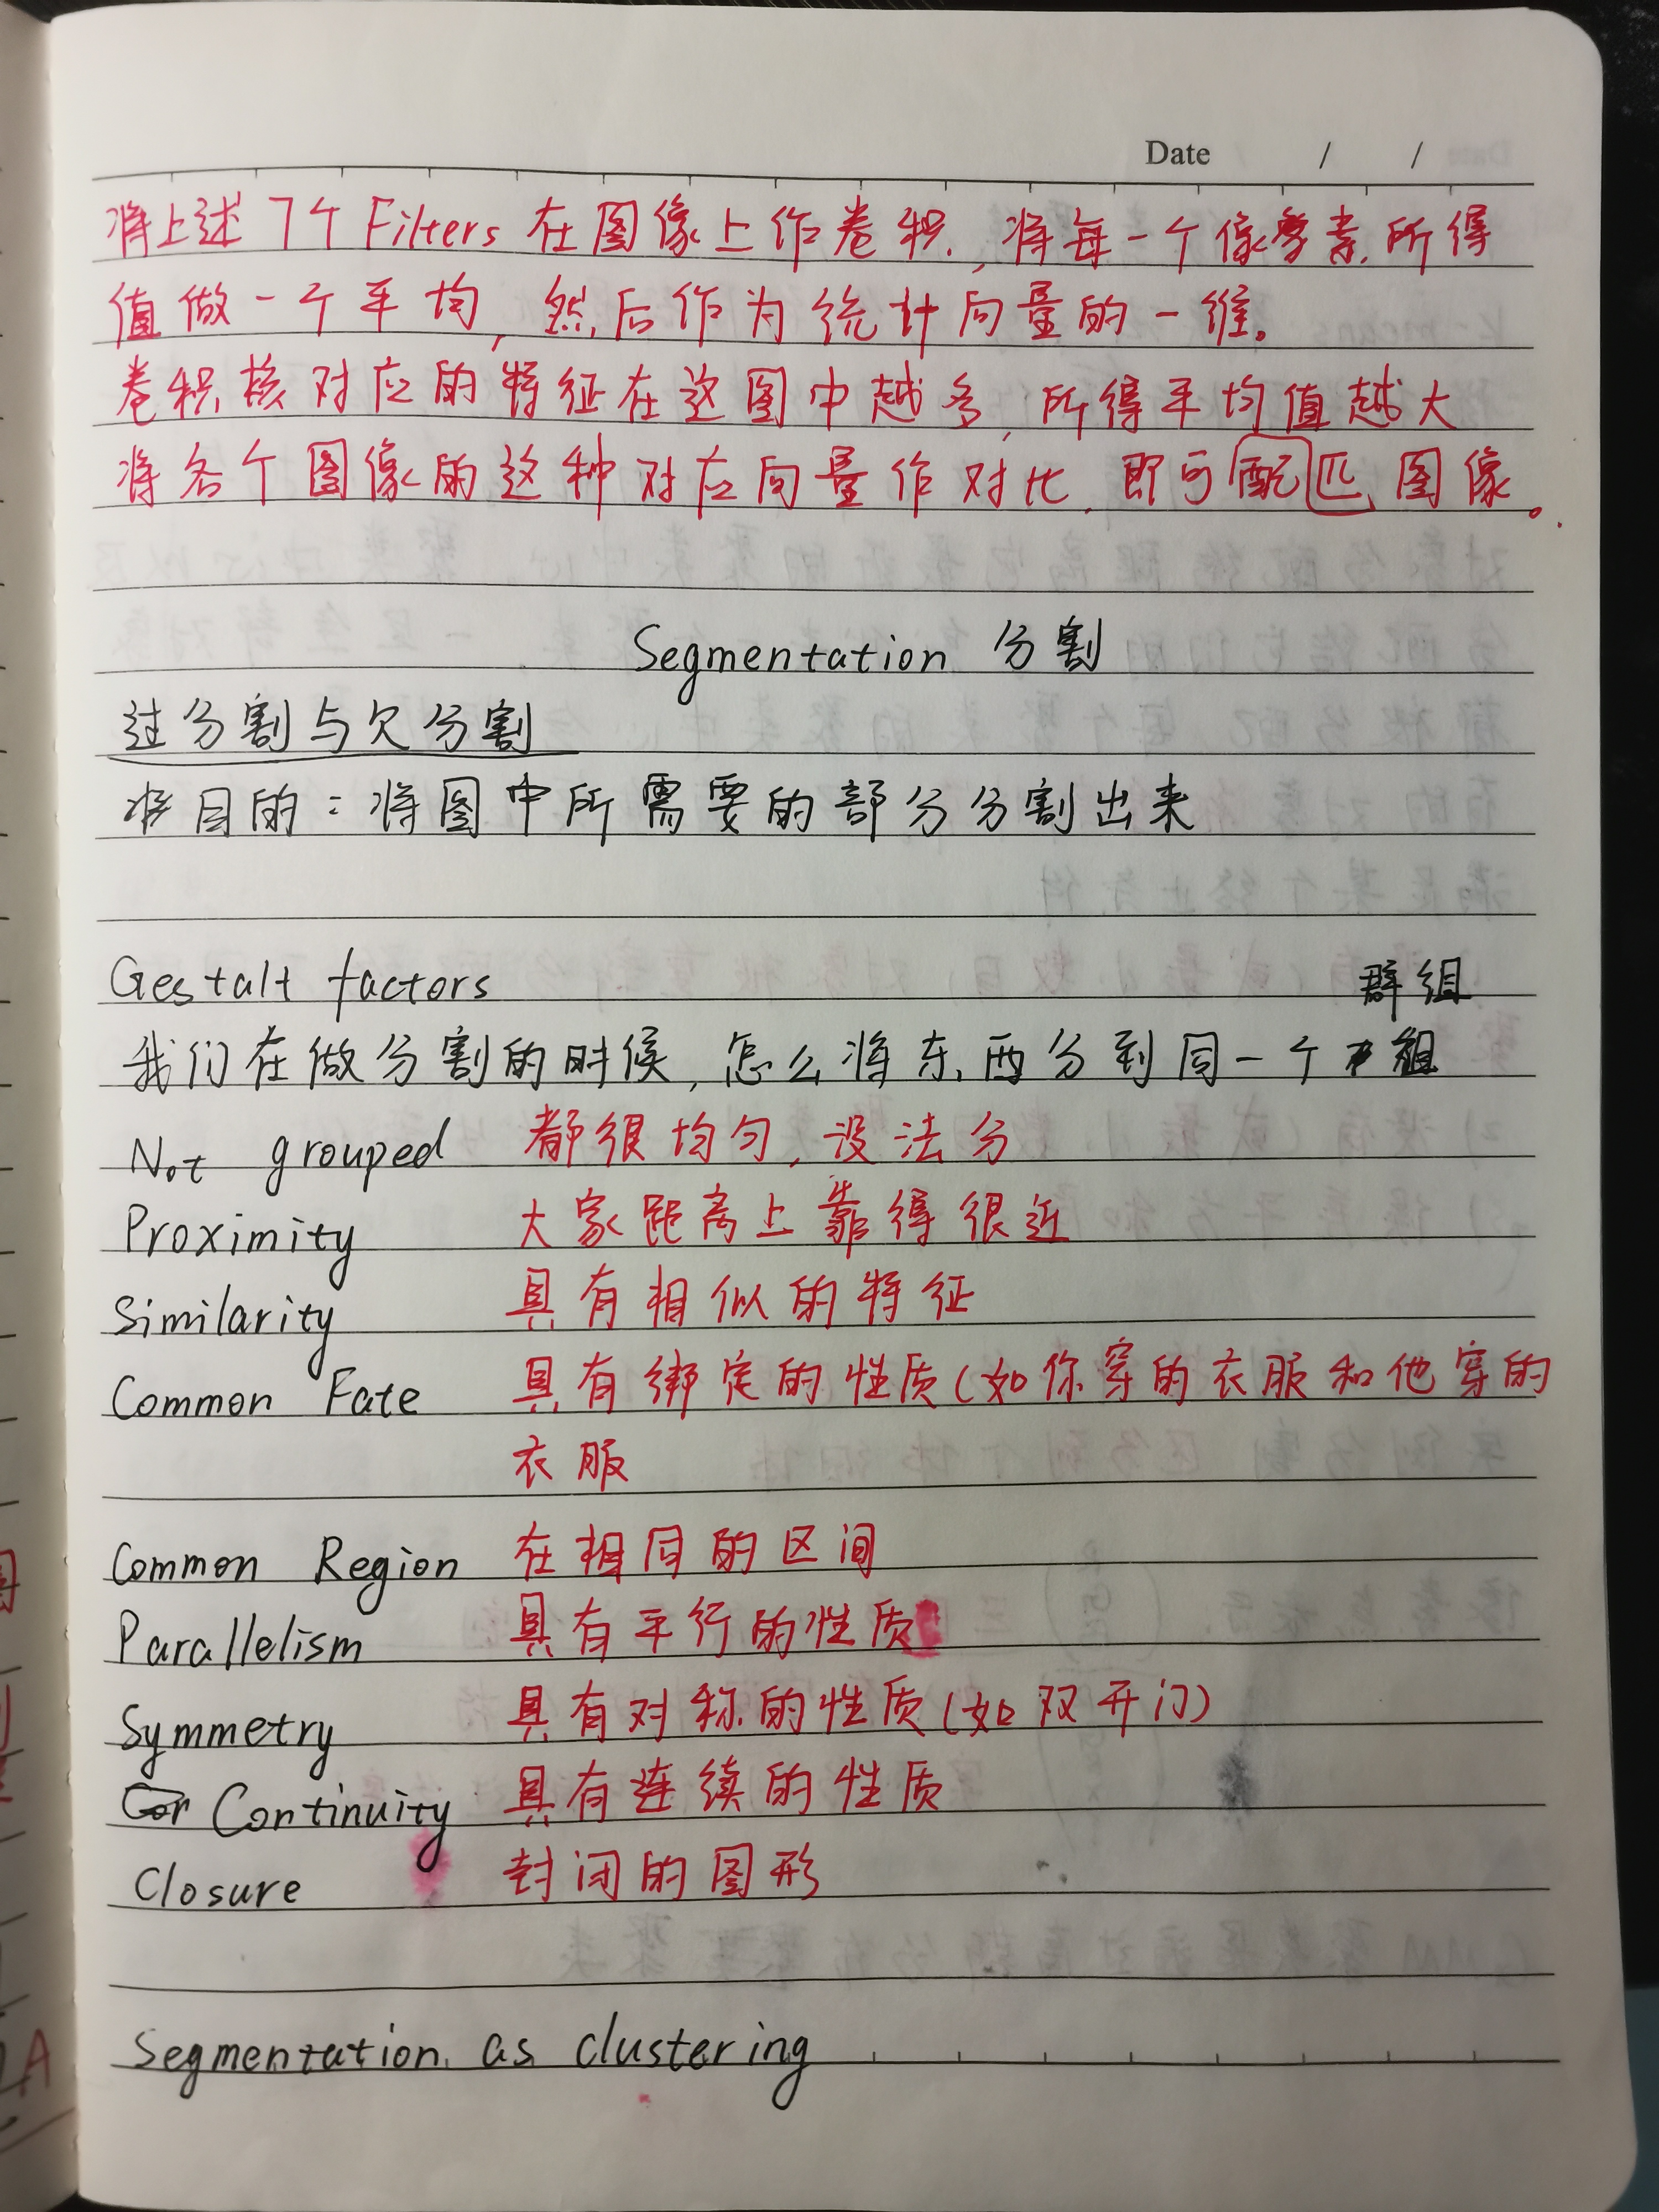 Date / /
将上述7个Filters在图像上作卷积,将每一个像素所得
值做一个平均,然后作为统计向量的一维。
卷积核对应的特征在这图中越多,所得平均值越大
将各个图像的这种对应向量作对比,即可配匹图像。
Segmentation 分割
过分割与欠分割
目的:将图中所需要的部分分割出来
Gestalt factors 群组
我们在做分割的时候,怎么将东西分到同一个组
Not grouped 都很均匀,没法分
Proximity 大家距离上靠得很近
Similarity 具有相似的特征
Common Fate 具有绑定的性质(如你穿的衣服和他穿的
衣服
Common Region 在相同的区间
Parallelism 具有平行的性质
Symmetry 具有对称的性质(如双开门)
Continuity 具有连续的性质
Closure 封闭的图形
Segmentation as clustering